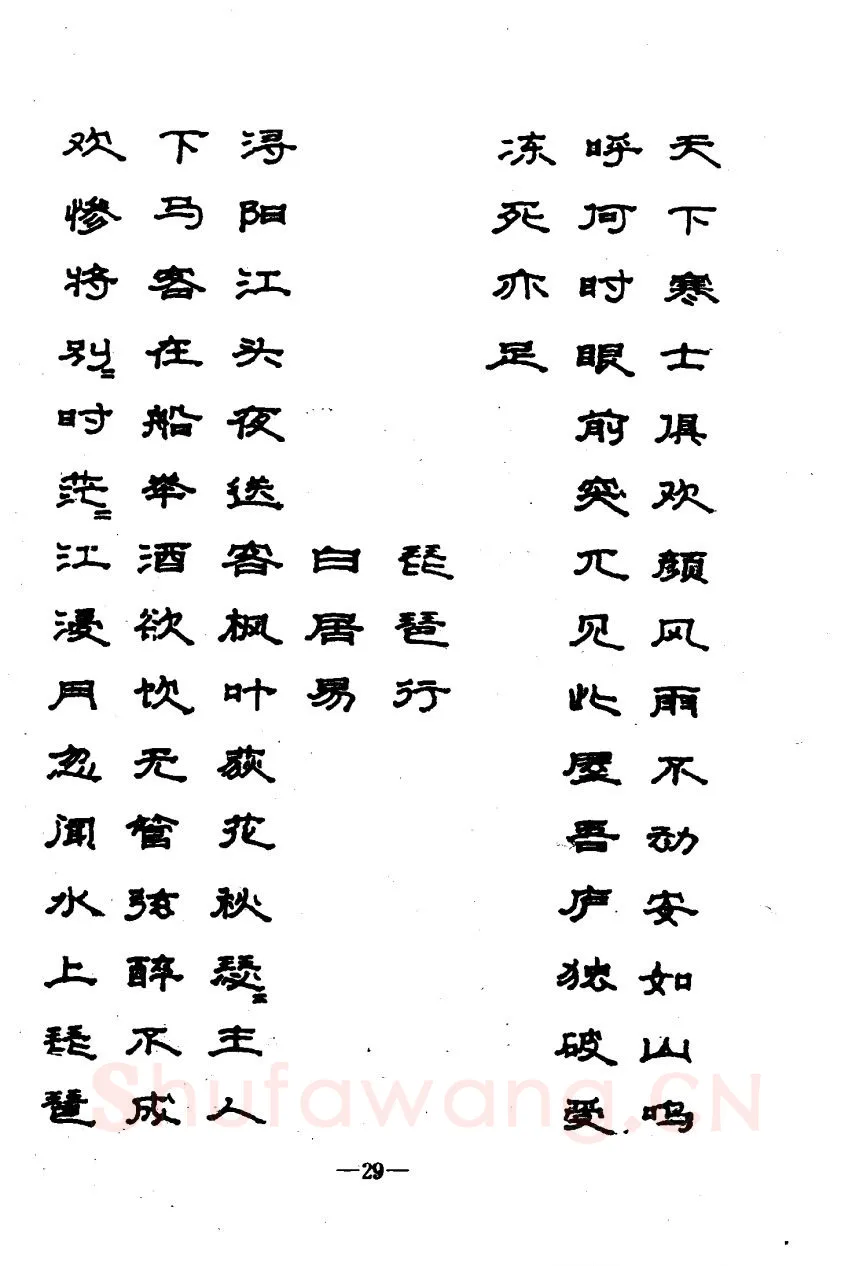 天下寒士俱欢颜风雨不动安如山呜
呼何时眼前突兀见此屋吾庐独破受
冻死亦足
琵琶行
白居易
浔阳江头夜送客枫叶荻花秋瑟〻主人
下马客在船举酒欲饮无管弦醉不成
欢惨将别〻时茫〻江浸月忽闻水上琵琶
Shufawang.CN
—29—